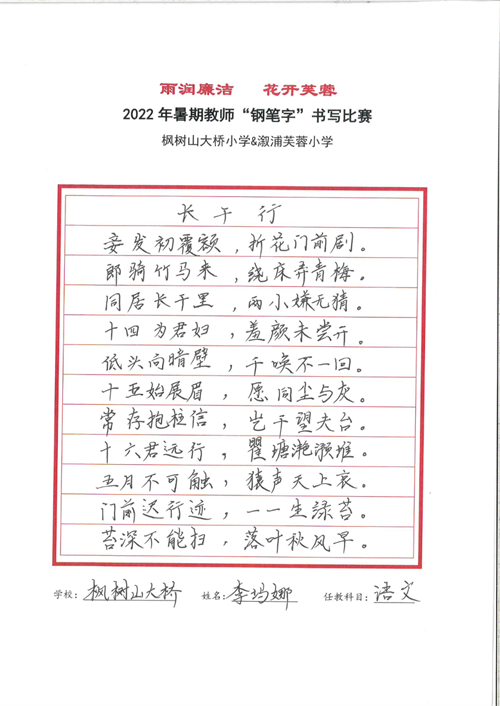 雨润廉洁 花开芙蓉
2022年暑期教师“钢笔字”书写比赛
枫树山大桥小学&溆浦芙蓉小学
长干行
妾发初覆额，折花门前剧。
郎骑竹马来，绕床弄青梅。
同居长干里，两小嫌无猜。
十四为君妇，羞颜未尝开。
低头向暗壁，千唤不一回。
十五始展眉，愿同尘与灰。
常存抱柱信，岂干望夫台。
十六君远行，瞿塘滟滪堆。
五月不可触，猿声天上哀。
门前迟行迹，一一生绿苔。
苔深不能扫，落叶秋风早。
学校：枫树山大桥 姓名：李玛娜 任教科目：语文